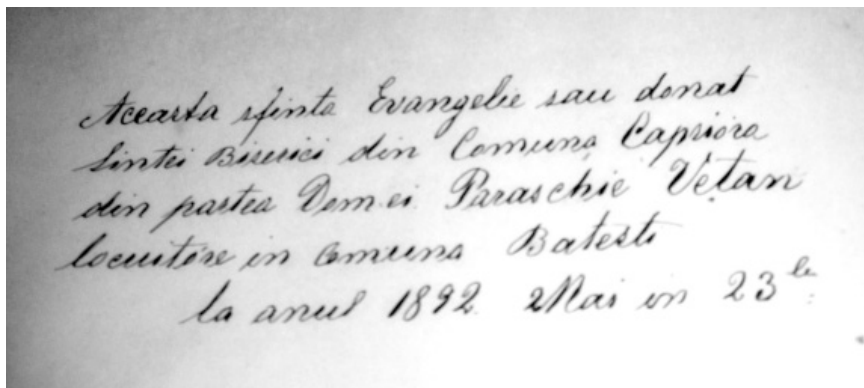 Aceasta sfinta Evangelie sau donat
Sintei Biserici din Comuna Capriora
din partea Domei Paraschie Vețan
locuitóre in comuna Batesti
la anul 1892 Mai in 23 le